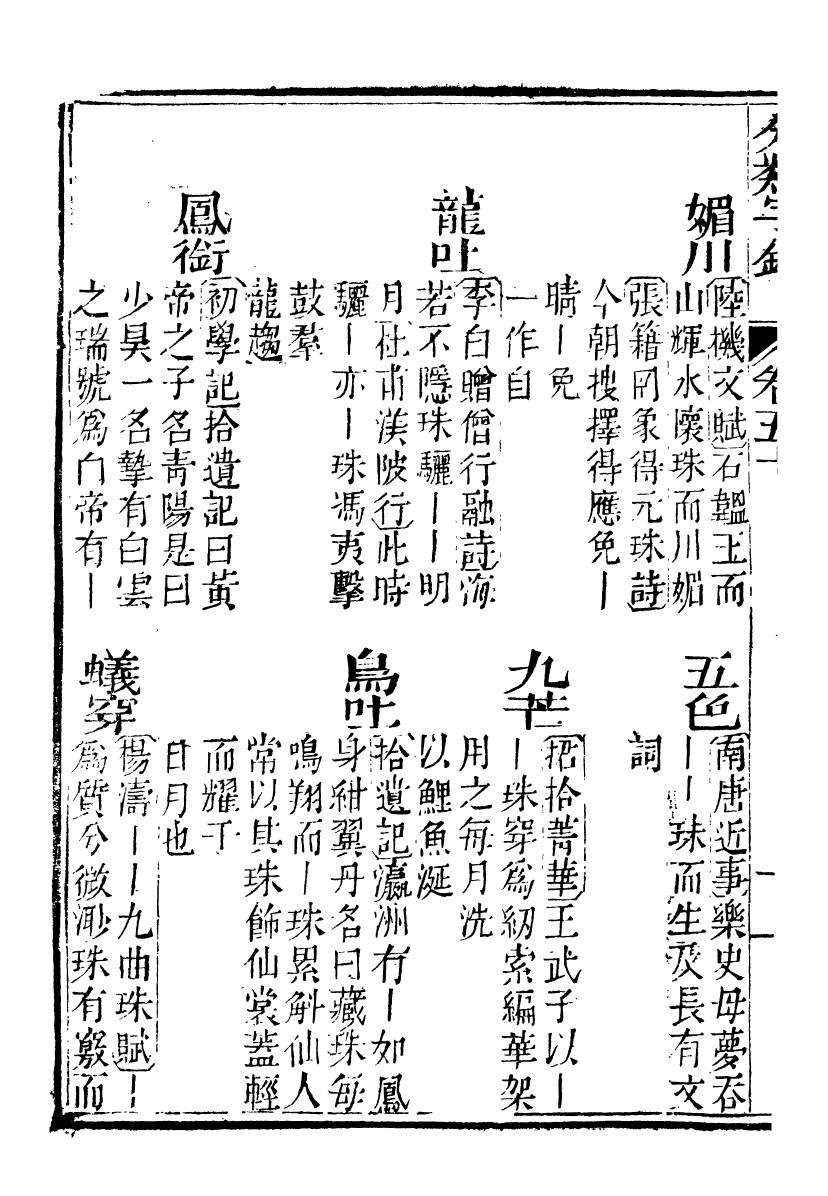 分類字錦 卷五十
媚川
陸機文賦石韞玉而
山輝水懷珠而川媚
張籍罔象得元珠詩
今朝搜擇得應免丨
晴丨免
一作自
龍吐
李白贈僧行融詩海
若不隱珠驪丨丨明
月杜甫渼陂行此時
驪丨亦丨珠馮夷擊
鼓羣
龍趨
鳳銜
初學記拾遺記曰黃
帝之子名青陽是曰
少昊一名摯有白雲
之瑞號爲白帝有丨
五色
南唐近事樂史母夢吞
丨丨珠而生及長有文
詞
九芒
捃拾菁華王武子以丨
丨珠穿爲紉索編華架
用之每月洗
以鯉魚涎
鳥吐
拾遺記瀛洲有丨如鳳
身紺翼丹名曰藏珠每
鳴翔而丨珠累斛仙人
常以其珠飾仙裳蓋輕
而耀于
日月也
蟻穿
楊濤丨丨九曲珠賦丨
爲質兮微渺珠有竅而